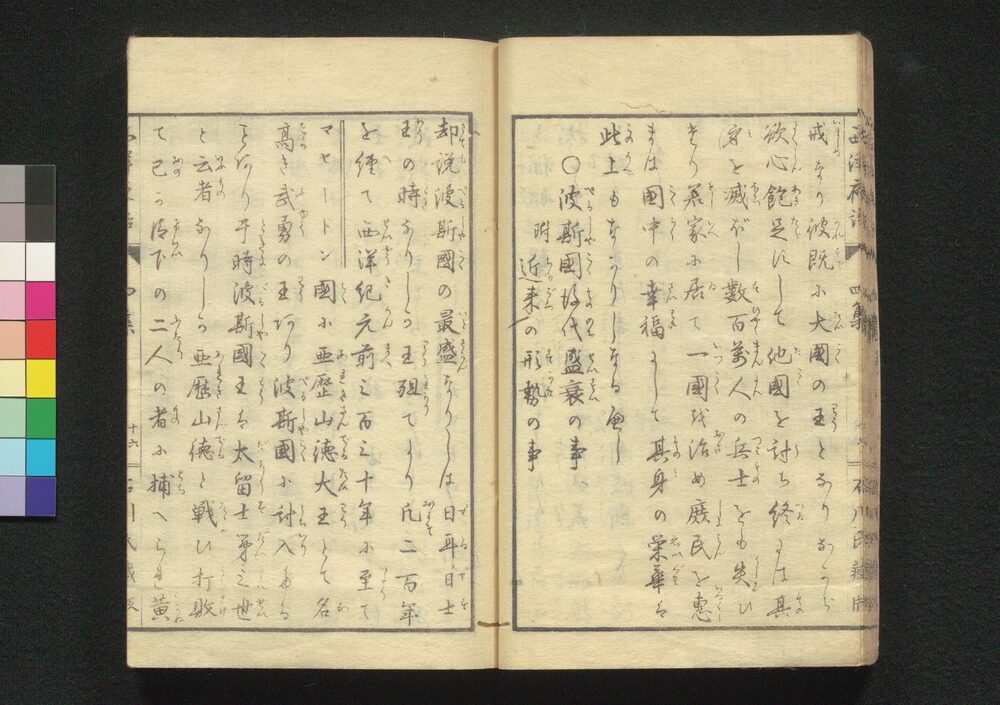 西洋夜話 四集 石川氏藏版
戒なり彼既に大國の王となりながら
欲心飽足にして他國を討ち終には其
身を滅ぼし數百萬人の兵士をも失ひ
きり若家に居て一國を治め庶民を惠
まは國中の幸福にして其身の榮華は
此上もなかりしなる可し
○波斯國古代盛衰の事
附近来の形勢の事
却説波斯國の最盛なりしは日耳日士
王の時なりしの王殂てより凡二百年
を經て西洋紀元前三百三十年に至て
マセードン國に亜歴山德大王とて名
高き武勇の王あり波斯國に討入たる
ことあり于時波斯國王は太留士第三世
と云者なりしが亜歴山德と戰ひ打敗
て己が臣下の二人の者に捕へられ黄
十六